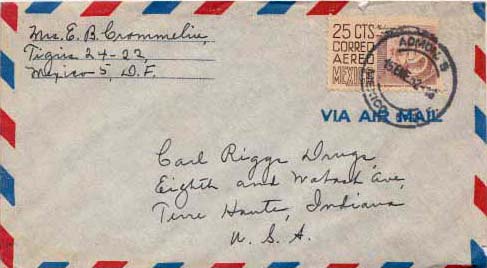 Mrs. E. B. Crommelin,
Tigris 24-22,
Mexico 5, D.F.
25 CTS
CORREO
AEREO
MEXICO
ADMON. 5
MEXICO
VIA AIR MAIL
Carl Riggs Drugs,
Eighth and Wabash Ave,
Terre Haute, Indiana
U. S. A.